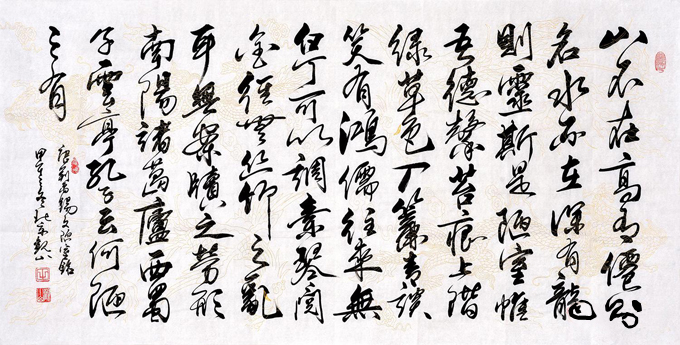 山不在高有僊則
名水不在深有龍
則靈斯是陋室惟
吾德馨苔痕上階
綠草色入簾青談
笑有鴻儒往來無
白丁可以調素琴閱
金經無絲竹之亂
耳無案牘之勞形
南陽諸葛廬西蜀
子雲亭孔子云何陋
之有
唐劉禹錫文陋室銘
甲午之冬北京